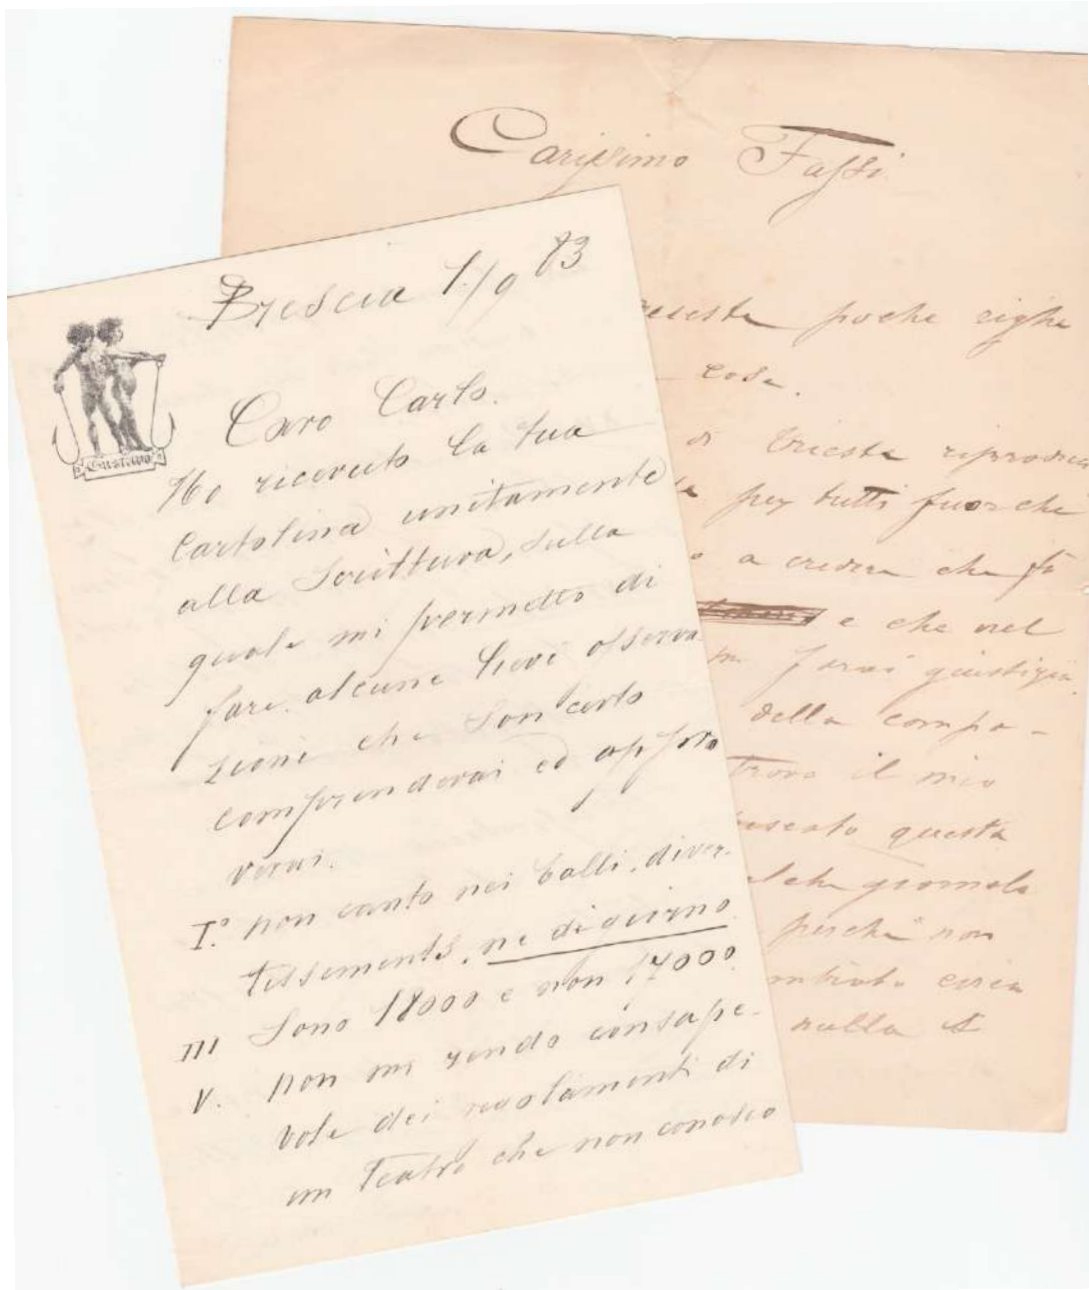 Carissimo Fassi
queste poche righe
cosa.
di Trieste riproduce
per tutti fuorchè
a credere che
e che nel
farai giustizia
della compa-
trovo il mio
questa
giornale
perchè non
circa
nulla
Brescia 1./9 83
GUSTAVO
Caro Carlo.
Ho ricevuto la tua
Cartolina unitamente
alla Scrittura, sulla
quale mi permetto di
fare alcune lievi osserva
zioni che son certo
comprenderai ed appro
verai.
I.° non canto nei balli, diver-
tissements, ne di giorno
III Sono 18000 e non 17000
V. non mi rendo consape-
vole dei regolamenti di
un Teatro che non conosco